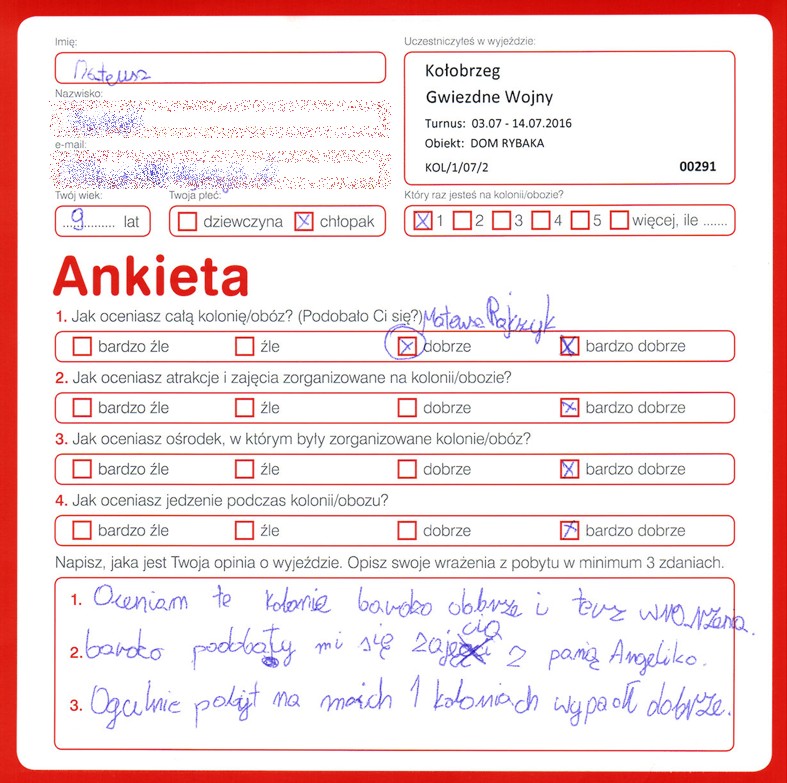 Imię:
Mateusz
Uczestniczyłeś w wyjeździe:
Kołobrzeg
Gwiezdne Wojny
Turnus: 03.07 - 14.07.2016
Obiekt: DOM RYBAKA
KOL/1/07/2 00291
Nazwisko:
e-mail:
Twój wiek:
9 lat
Twoja płeć:
dziewczyna chłopak
Który raz jesteś na kolonii/obozie?
1 2 3 4 5 więcej, ile .......
Ankieta
1. Jak oceniasz całą kolonię/obóz? (Podobało Ci się?)
bardzo źle źle dobrze bardzo dobrze
2. Jak oceniasz atrakcje i zajęcia zorganizowane na kolonii/obozie?
bardzo źle źle dobrze bardzo dobrze
3. Jak oceniasz ośrodek, w którym były zorganizowane kolonie/obóz?
bardzo źle źle dobrze bardzo dobrze
4. Jak oceniasz jedzenie podczas kolonii/obozu?
bardzo źle źle dobrze bardzo dobrze
Napisz, jaka jest Twoja opinia o wyjeździe. Opisz swoje wrażenia z pobytu w minimum 3 zdaniach.
1. Oceniam te kolonie bardzo dobrze i
2. bardzo podobały mi się zajęcia z panią Angeliko.
3. Ogulnie pobyt na moich 1 koloniach wypadł dobrze.